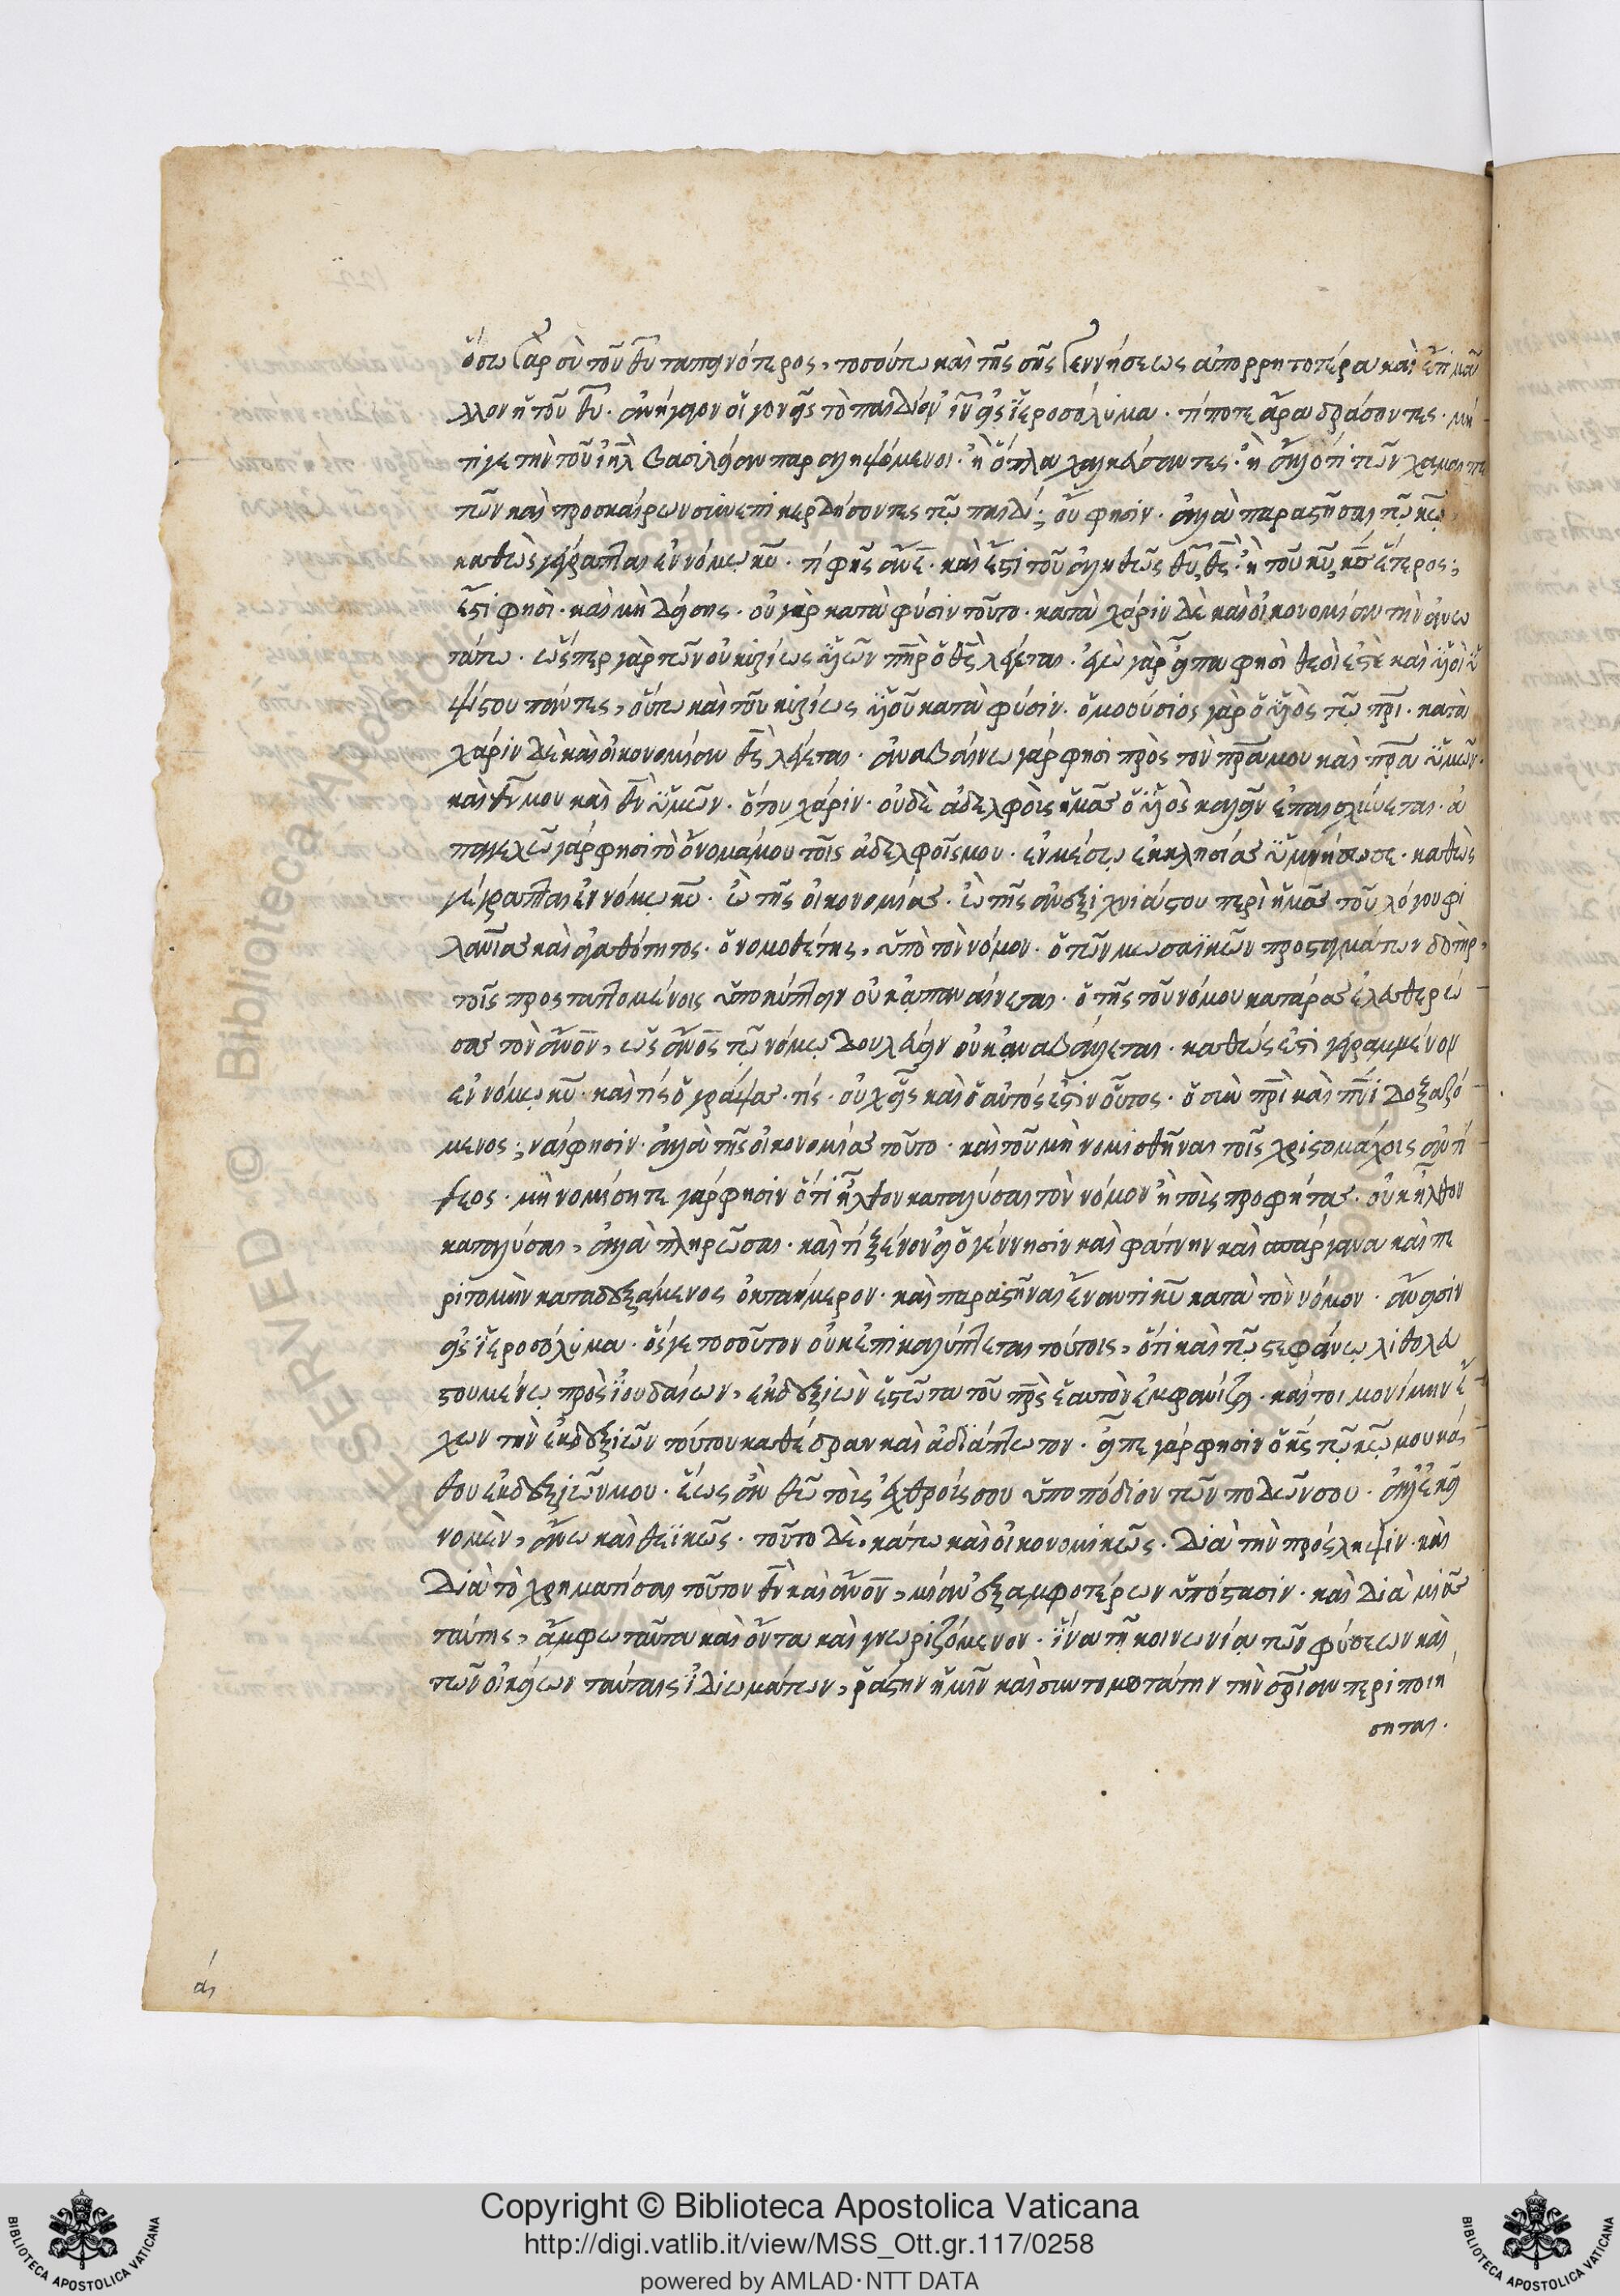 ὅσω γὰρ σὺ τοῦ θυ ταπεινότερος, τοσούτω καὶ τῆς σῆς γεννήσεως ἀπορρητοτέρα καὶ ἔτι μᾶ
λλον ἢ τοῦ θυ. ἀνήγαγον οἱ γονεῖς τὸ παιδίον ιν εἰς ἱεροσόλυμα. τί ποτε ἄρα δράσοντες. μή
τι γε τὴν τοῦ ιηλ βασιλείαν παραληψόμενοι. ἢ ὅπλα χαλκεύσαντες. ἢ ἄλλό τι τῶν χαμαιπε
τῶν καὶ προσκαίρων συνεπικερδήσοντες τῷ παιδί; οὔ φησιν. ἀλλὰ παραστῆσαι τῷ κω,
καθὼς γέγραπται ἐν νόμῳ κυ. τί φῂς ανε. καὶ ἔστι τοῦ ἀληθῶς θυ, θς. ἢ τοῦ κυ, κς ἕτερος;
ἔστι φησὶ. καὶ μὴ δείσῃς. οὐ γὰρ κατὰ φύσιν τοῦτο. κατὰ χάριν δὲ καὶ οἰκονομίαν τὴν ἀνω
τάτω. ὥσπερ γὰρ τῶν οὐ κυρίως υἱῶν πηρ ὁ θς λέγεται. ἐγὼ γὰρ εἶπα φησὶ θεοὶ ἐστὲ καὶ υἱοὶ ὑ
ψίστου πάντες, οὕτω καὶ τοῦ κυρίως υἱοῦ κατὰ φύσιν. ὁμοούσιος γὰρ ὁ υἱὸς τῷ πρι. κατὰ
χάριν δὲ καὶ οἰκονομίαν θς λέγεται. ἀναβαίνω γάρ φησι πρὸς τὸν πρα μου καὶ πρα ὑμῶν.
καὶ θν μου καὶ θν ὑμῶν. ὅτου χάριν. οὐδὲ ἀδελφοὺς ἡμᾶς ὁ υἱὸς καλεῖν ἐπαισχύνεται. ἀ
παγγελῶ γάρ φησι τὸ ὄνομά μου τοῖς ἀδελφοῖς μου. ἐν μέσῳ ἐκκλησίας ὑμνήσω σε. καθὼς
γέγραπται ἐν νόμῳ κυ. ὢ τῆς οἰκονομίας. ὢ τῆς ἀνεξιχνιάστου περὶ ἡμᾶς τοῦ λόγου φι
λανιας καὶ ἀγαθότητος. ὁ νομοθέτης, ὑπὸ τὸν νόμον. ὁ τῶν μωσαϊκῶν προσταγμάτων δοτὴρ,
τοῖς προσταττομένοις ὑποκύπτειν οὐκ ἀπαναίνεται. ὁ τῆς τοῦ νόμου κατάρας ἐλευθερώ
σας τὸν ανον, ὡς ανος τῷ νόμῳ δουλεύειν οὐκ ἀναβάλλεται. καθώς ἐστι γεγραμμένον
ἐν νόμῳ κυ. καὶ τίς ὁ γράψας. τίς. οὐχ εἷς καὶ ὁ αὐτός ἐστιν οὗτος. ὁ σὺν πρὶ καὶ πνι δοξαζό
μενος; ναί φησιν. ἀλλὰ τῆς οἰκονομίας τοῦτο. καὶ τοῦ μὴ νομισθῆναι τοῖς χριστομάχοις ἀντί
θεος. μὴ νομίσητε γάρ φησιν ὅτι ἦλθον καταλύσαι τὸν νόμον ἢ τοὺς προφήτας. οὐκ ἦλθον
καταλύσαι, ἀλλὰ πληρῶσαι. καὶ τί ξένον εἰ ὁ γέννησιν καὶ φάτνην καὶ σπάργανα καὶ πε
ριτομὴν καταδεξάμενος ὀκταήμερον. καὶ παραστῆναι ἔναντι κυ κατὰ τὸν νόμον. ἄνεισιν
εἰς ἱεροσόλυμα. ὅς γε τοσοῦτον οὐκ ἐπικαλύπτεται τούτοις, ὅτι καὶ τῷ στεφάνῳ λιθολευ
στουμένῳ πρὸς ἰουδαίων, ἐκ δεξιῶν ἑστῶτα τοῦ πρς ἑαυτὸν ἐμφανίζει. καίτοι μονίμην ἔ
χων τὴν ἐκ δεξιῶν τούτου καθέδραν καὶ ἀδιάπτωτον. εἶπε γάρ φησιν ὁ κς τῷ κω μου κά
θου ἐκ δεξιῶν μου. ἕως ἂν θῶ τοὺς ἐχθρούς σου ὑποπόδιον τῶν ποδῶν σου. ἀλλ' ἐκεῖ
νο μὲν, ἄνω καὶ θεϊκῶς. τοῦτο δὲ, κάτω καὶ οἰκονομικῶς. διὰ τὴν πρόσληψιν. καὶ
διὰ τὸ χρηματίσαι τοῦτον θν καὶ ανον, μίαν ἐξ ἀμφοτέρων ὑπόστασιν. καὶ διὰ μιᾶς
ταύτης, ἄμφω ταῦτα καὶ ὄντα καὶ γνωριζόμενον. ἵνα τῇ κοινωνίᾳ τῶν φύσεων καὶ
τῶν οἰκείων ταύταις ἰδιωμάτων, ῥάστην ἡμῖν καὶ συντομοτάτην τὴν σριαν περιποιή
σηται.